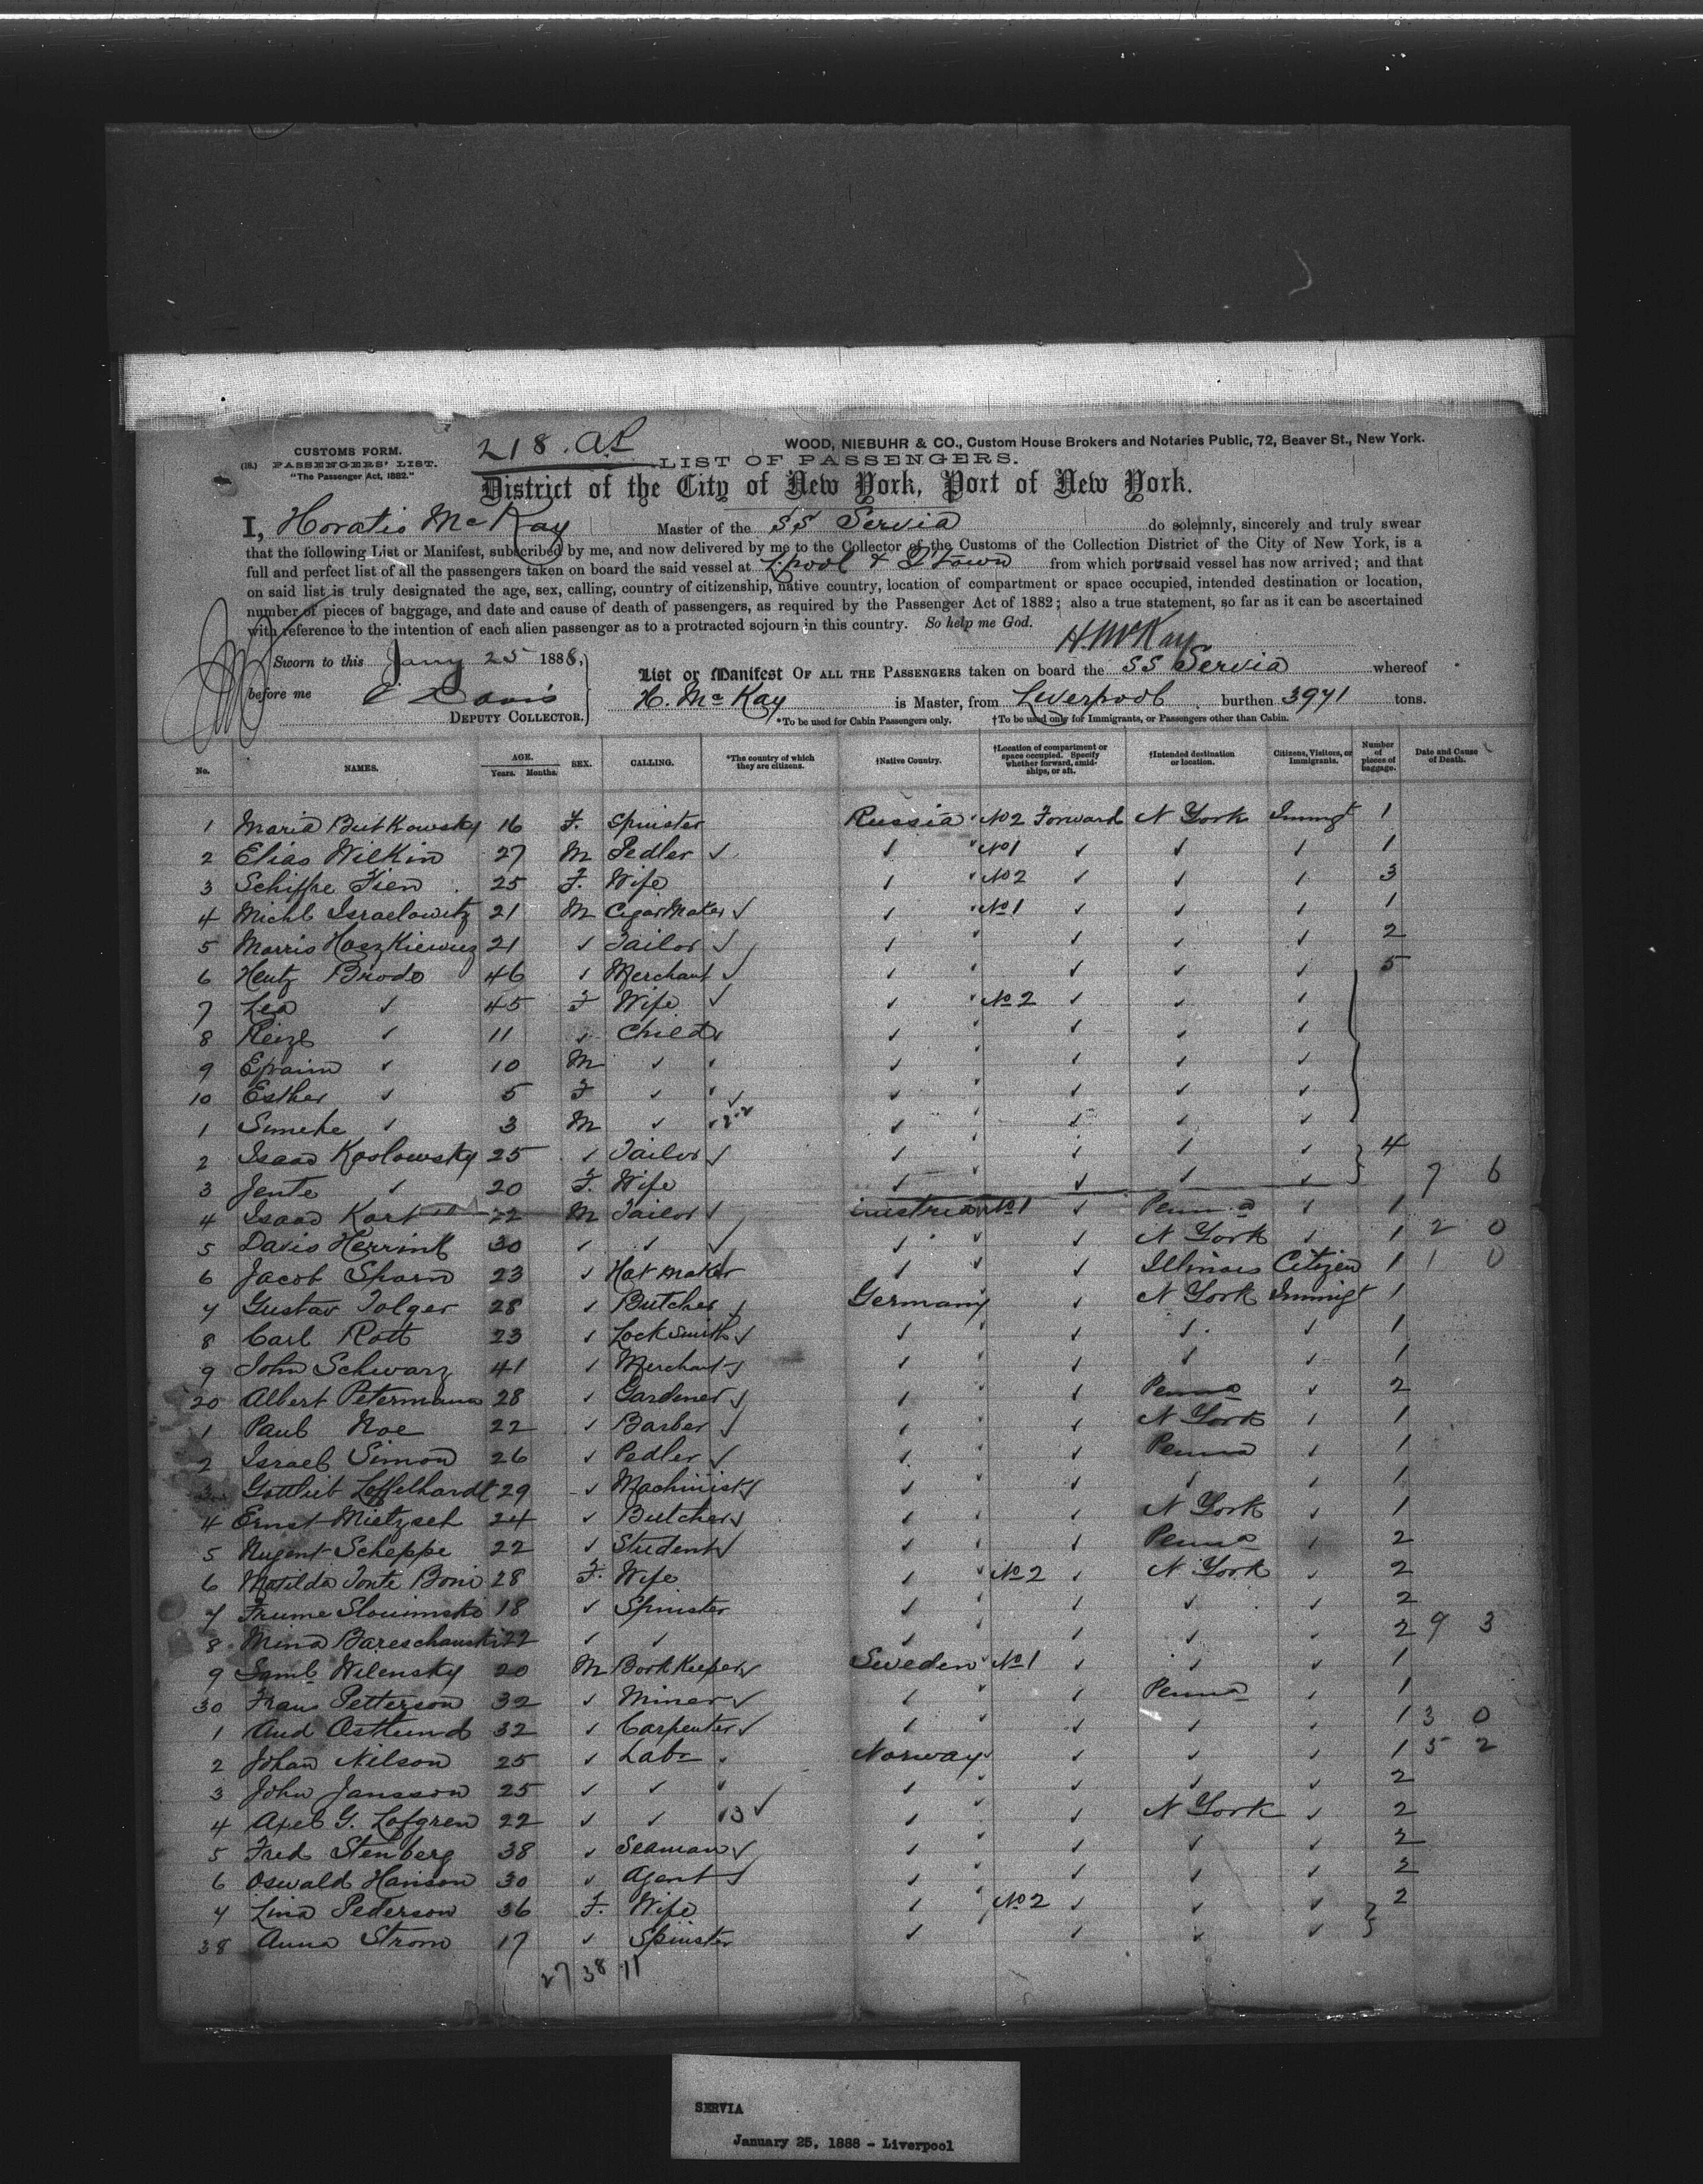 218. al
WOOD, NIEBUHR & CO., Custom House Brokers and Notaries Public, 72, Beaver St., New York.
CUSTOMS FORM.
(18.) PASSENGERS' LIST.
"The Passenger Act, 1882."
LIST OF PASSENGERS.
District of the City of New York, Port of New York.
I, Horatio McKay Master of the SS Servia do solemnly, sincerely and truly swear
that the following List or Manifest, subscribed by me, and now delivered by me to the Collector of the Customs of the Collection District of the City of New York, is a
full and perfect list of all the passengers taken on board the said vessel at L'pool & Q'Town from which ports said vessel has now arrived; and that
on said list is truly designated the age, sex, calling, country of citizenship, native country, location of compartment or space occupied, intended destination or location,
number of pieces of baggage, and date and cause of death of passengers, as required by the Passenger Act of 1882; also a true statement, so far as it can be ascertained
with reference to the intention of each alien passenger as to a protracted sojourn in this country. So help me God.
H. McKay
Sworn to this Jany 25 1888,
before me C Davis
DEPUTY COLLECTOR.
List or Manifest OF ALL THE PASSENGERS taken on board the SS Servia whereof
H. McKay is Master, from Liverpool burthen 3971 tons.
*To be used for Cabin Passengers only. †To be used only for Immigrants, or Passengers other than Cabin.
No. NAMES. AGE. Years. Months. SEX. CALLING. *The country of which they are citizens. †Native Country. †Location of compartment or space occupied. Specify whether forward, amidships, or aft. †Intended destination or location. Citizens, Visitors, or Immigrants. Number of pieces of baggage. Date and Cause of Death.
1 Maria Butkowsky 16 F. Spinster Russia No 2 Forward N York Immigt 1
2 Elias Wilkin 27 M Pedler ✓ ✓ No 1 ✓ ✓ ✓ 1
3 Schiffre Fien 25 F. Wife ✓ No 2 ✓ ✓ ✓ 3
4 Michl Israelowitz 21 M Cigar Maker ✓ ✓ No 1 ✓ ✓ ✓ 1
5 Morris Haczkiewicz 21 ✓ Tailor ✓ ✓ ✓ ✓ ✓ 2
6 Hentz Brodo 46 ✓ Merchant ✓ ✓ ✓ ✓ ✓ 5
7 Lea ✓ 45 F Wife ✓ ✓ No 2 ✓ ✓ ✓
8 Reizl ✓ 11 ✓ Child ✓ ✓ ✓ ✓ ✓
9 Efraim ✓ 10 M ✓ ✓ ✓ ✓ ✓ ✓
10 Esther ✓ 5 F ✓ ✓ ✓ ✓ ✓ ✓
1 Simche ✓ 3 M ✓ ✓ ✓ ✓ ✓
2 Isaac Koslowsky 25 ✓ Tailor ✓ ✓ ✓ ✓ ✓ 4
3 Jente ✓ 20 F. Wife ✓ ✓ ✓ ✓ 7 6
4 Isaac Kart 22 M Tailor ✓ Austria No 1 ✓ Penna ✓ 1
5 Davis Herrink 30 ✓ ✓ ✓ ✓ ✓ N York ✓ 1 2 0
6 Jacob Sharn 23 ✓ Hat maker ✓ ✓ Illinois Citizen 1 1 0
7 Gustav Tolger 28 ✓ Butcher ✓ Germany ✓ N York Immigt 1
8 Carl Rott 23 ✓ Locksmith ✓ ✓ ✓ ✓ ✓ 1
9 John Schwarz 41 ✓ Merchant ✓ ✓ ✓ ✓ ✓ 1
20 Albert Petermann 28 ✓ Gardener ✓ ✓ ✓ Penna ✓ 2
1 Paul Noe 22 ✓ Barber ✓ ✓ ✓ N York ✓ 1
2 Israel Simon 26 ✓ Pedler ✓ ✓ ✓ Penna ✓ 1
3 Gottlieb Loffelhardt 29 ✓ Machinist ✓ ✓ ✓ ✓ ✓ 1
4 Ernst Mietzsch 24 ✓ Butcher ✓ ✓ ✓ N York ✓ 1
5 Nugent Scheppe 22 ✓ Student ✓ ✓ ✓ Penna ✓ 2
6 Matilda Tonte Boni 28 F. Wife ✓ No 2 ✓ N York ✓ 2
7 Frume Slonimski 18 ✓ Spinster ✓ ✓ ✓ ✓ 2
8 Mina Bareschanski 22 ✓ ✓ ✓ ✓ ✓ ✓ 2 9 3
9 Saml Wilensky 20 M Book Keeper ✓ Sweden No 1 ✓ ✓ ✓ 1
30 Frans Petterson 32 ✓ Miner ✓ ✓ ✓ Penna ✓ 1
1 Aud Ostlund 32 ✓ Carpenter ✓ ✓ ✓ ✓ ✓ 1 3 0
2 Johan Nilson 25 ✓ Labr ✓ Norway ✓ ✓ ✓ 1 5 2
3 John Jansson 25 ✓ ✓ ✓ ✓ ✓ ✓ ✓ 2
4 Axel G. Lofgren 22 ✓ ✓ 13 ✓ ✓ ✓ N York ✓ 2
5 Fred Stenberg 38 ✓ Seaman ✓ ✓ ✓ ✓ ✓ 2
6 Oswald Hanson 30 ✓ Agent ✓ ✓ ✓ ✓ ✓ 2
7 Lina Pederson 36 F. Wife ✓ No 2 ✓ ✓ ✓ 2
38 Anna Strom 17 ✓ Spinster ✓ ✓ ✓ ✓
27 38 11
SERVIA
January 25, 1888 - Liverpool